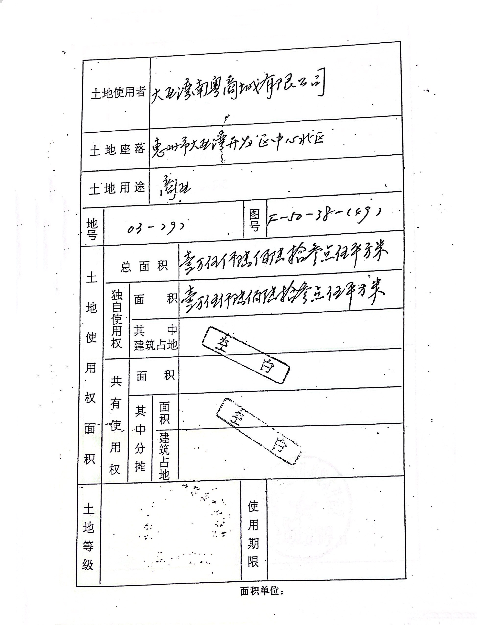 土地使用者 大亚湾南粤商城有限公司
土地座落 惠州市大亚湾开发区中心北区
土地用途 商业
地号 03-(9) 图号 F-50-38-(49)
土地使用权面积
总面积 壹万伍仟陆佰陆拾叁点伍平方米
独自使用权 面积 壹万伍仟陆佰陆拾叁点伍平方米
其中建筑占地
空白
共有使用权 面积
其中分摊 面积
空白
建筑占地
土地等级 使用期限
面积单位: